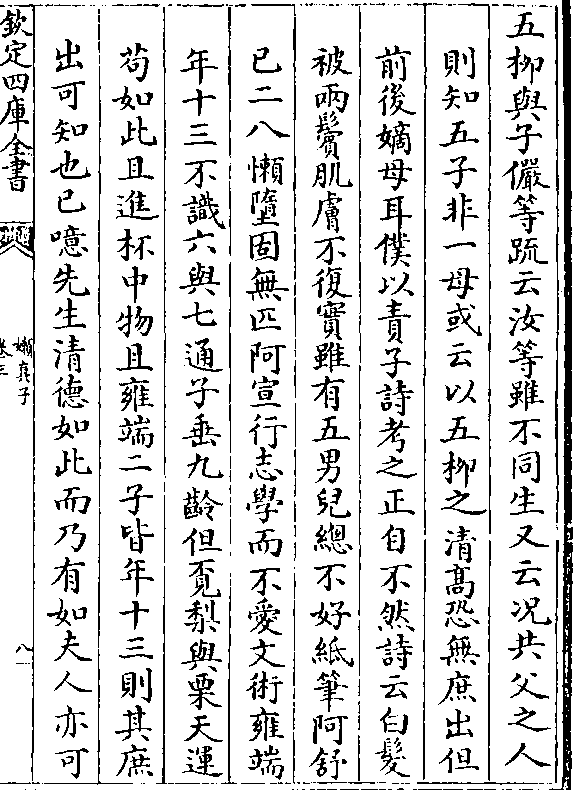 五柳與子儼等疏云汝等雖不同生又云况共父之人
則知五子非一母或云以五柳之清髙恐無庶出但
前後嫡母耳僕以責子詩考之正自不然詩云白髮
被兩鬢肌膚不復實雖有五男兒總不好紙筆阿舒
已二八懶墮固無匹阿宣行志學而不愛文術雍端
年十三不識六與七通子垂九齡但覓梨與栗天運
苟如此且進杯中物且雍端二子皆年十三則其庶
出可知也已噫先生清德如此而乃有如夫人亦可
欽定四庫全書
嬾真子
卷三
八